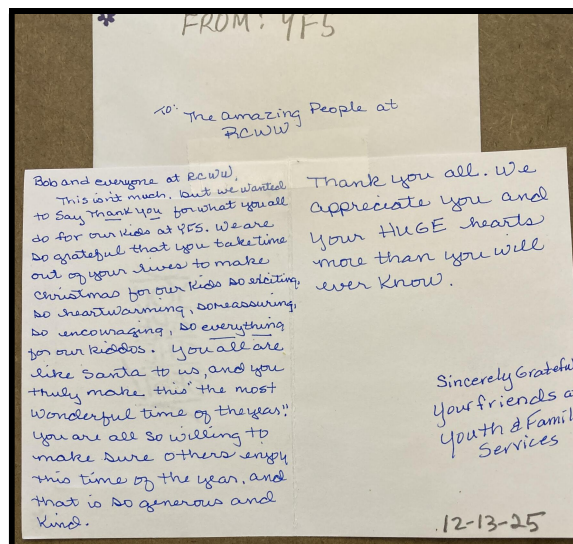 FROM: YFS
TO: The amazing People at
RCWW
Bob and everyone at RCWW,
This isn't much, but we wanted
to say Thank you for what you all
do for our kids at YFS. We are
so grateful that you take time
out of your lives to make
Christmas for our kids so exciting,
so heartwarming, so reassuring,
so encouraging, so everything
for our kiddos. You all are
like Santa to us, and you
truly make this "the most
wonderful time of the year".
You are all so willing to
make sure others enjoy
this time of the year, and
that is so generous and
kind.
Thank you all. We
appreciate you and
your HUGE hearts
more than you will
ever know.
Sincerely Grateful
your friends a
Youth & Famil
Services
12-13-25